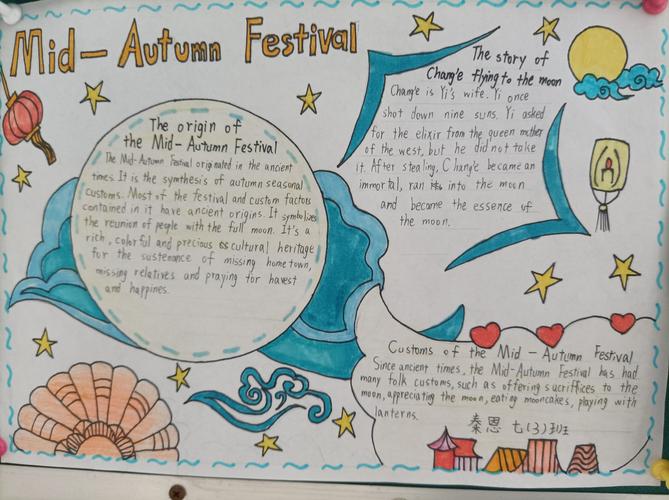 Mid-Autumn Festival
The origin of
the Mid-Autumn Festival
The Mid-Autumn Festival originated in the ancient
times. It is the symthesis of autumn seasonal
customs. Most of the festival and custom factors
contained in it have ancient origins. It symbolizes
the reunion of people with the full moon. It's a
rich, colorful and precious cultural heritage
for the sustenance of missing hometown,
missing relatives and praying for harvest
and happines.
The story of
Chang'e flying to the moon
Chang'e is Yi's wife. Yi once
shot down nine suns. Yi asked
for the elixir from the queen mother
of the west, but he did not take
it. After stealing, Chang'e became an
immortal, ran into the moon
and became the essence of
the moon.
Customs of the Mid-Autumn Festival
Since ancient times, the Mid-Autumn Festival has had
many folk customs, such as offering sacriffices to the
moon, appreciating the moon, eating mooncakes, playing with
lanterns.
秦恩 七(3)班